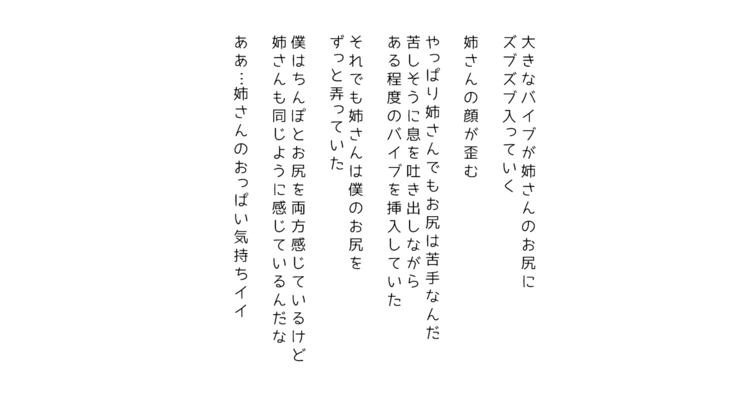 大きなバイブが姉さんのお尻に
ズブズブ入っていく
姉さんの顔が歪む
やっぱり姉さんでもお尻は苦手なんだ
苦しそうに息を吐き出しながら
ある程度のバイブを挿入していた
それでも姉さんは僕のお尻を
ずっと弄っていた
僕はちんぽとお尻を両方感じているけど
姉さんも同じように感じているんだな
ああ…姉さんのおっぱい気持ちイイ